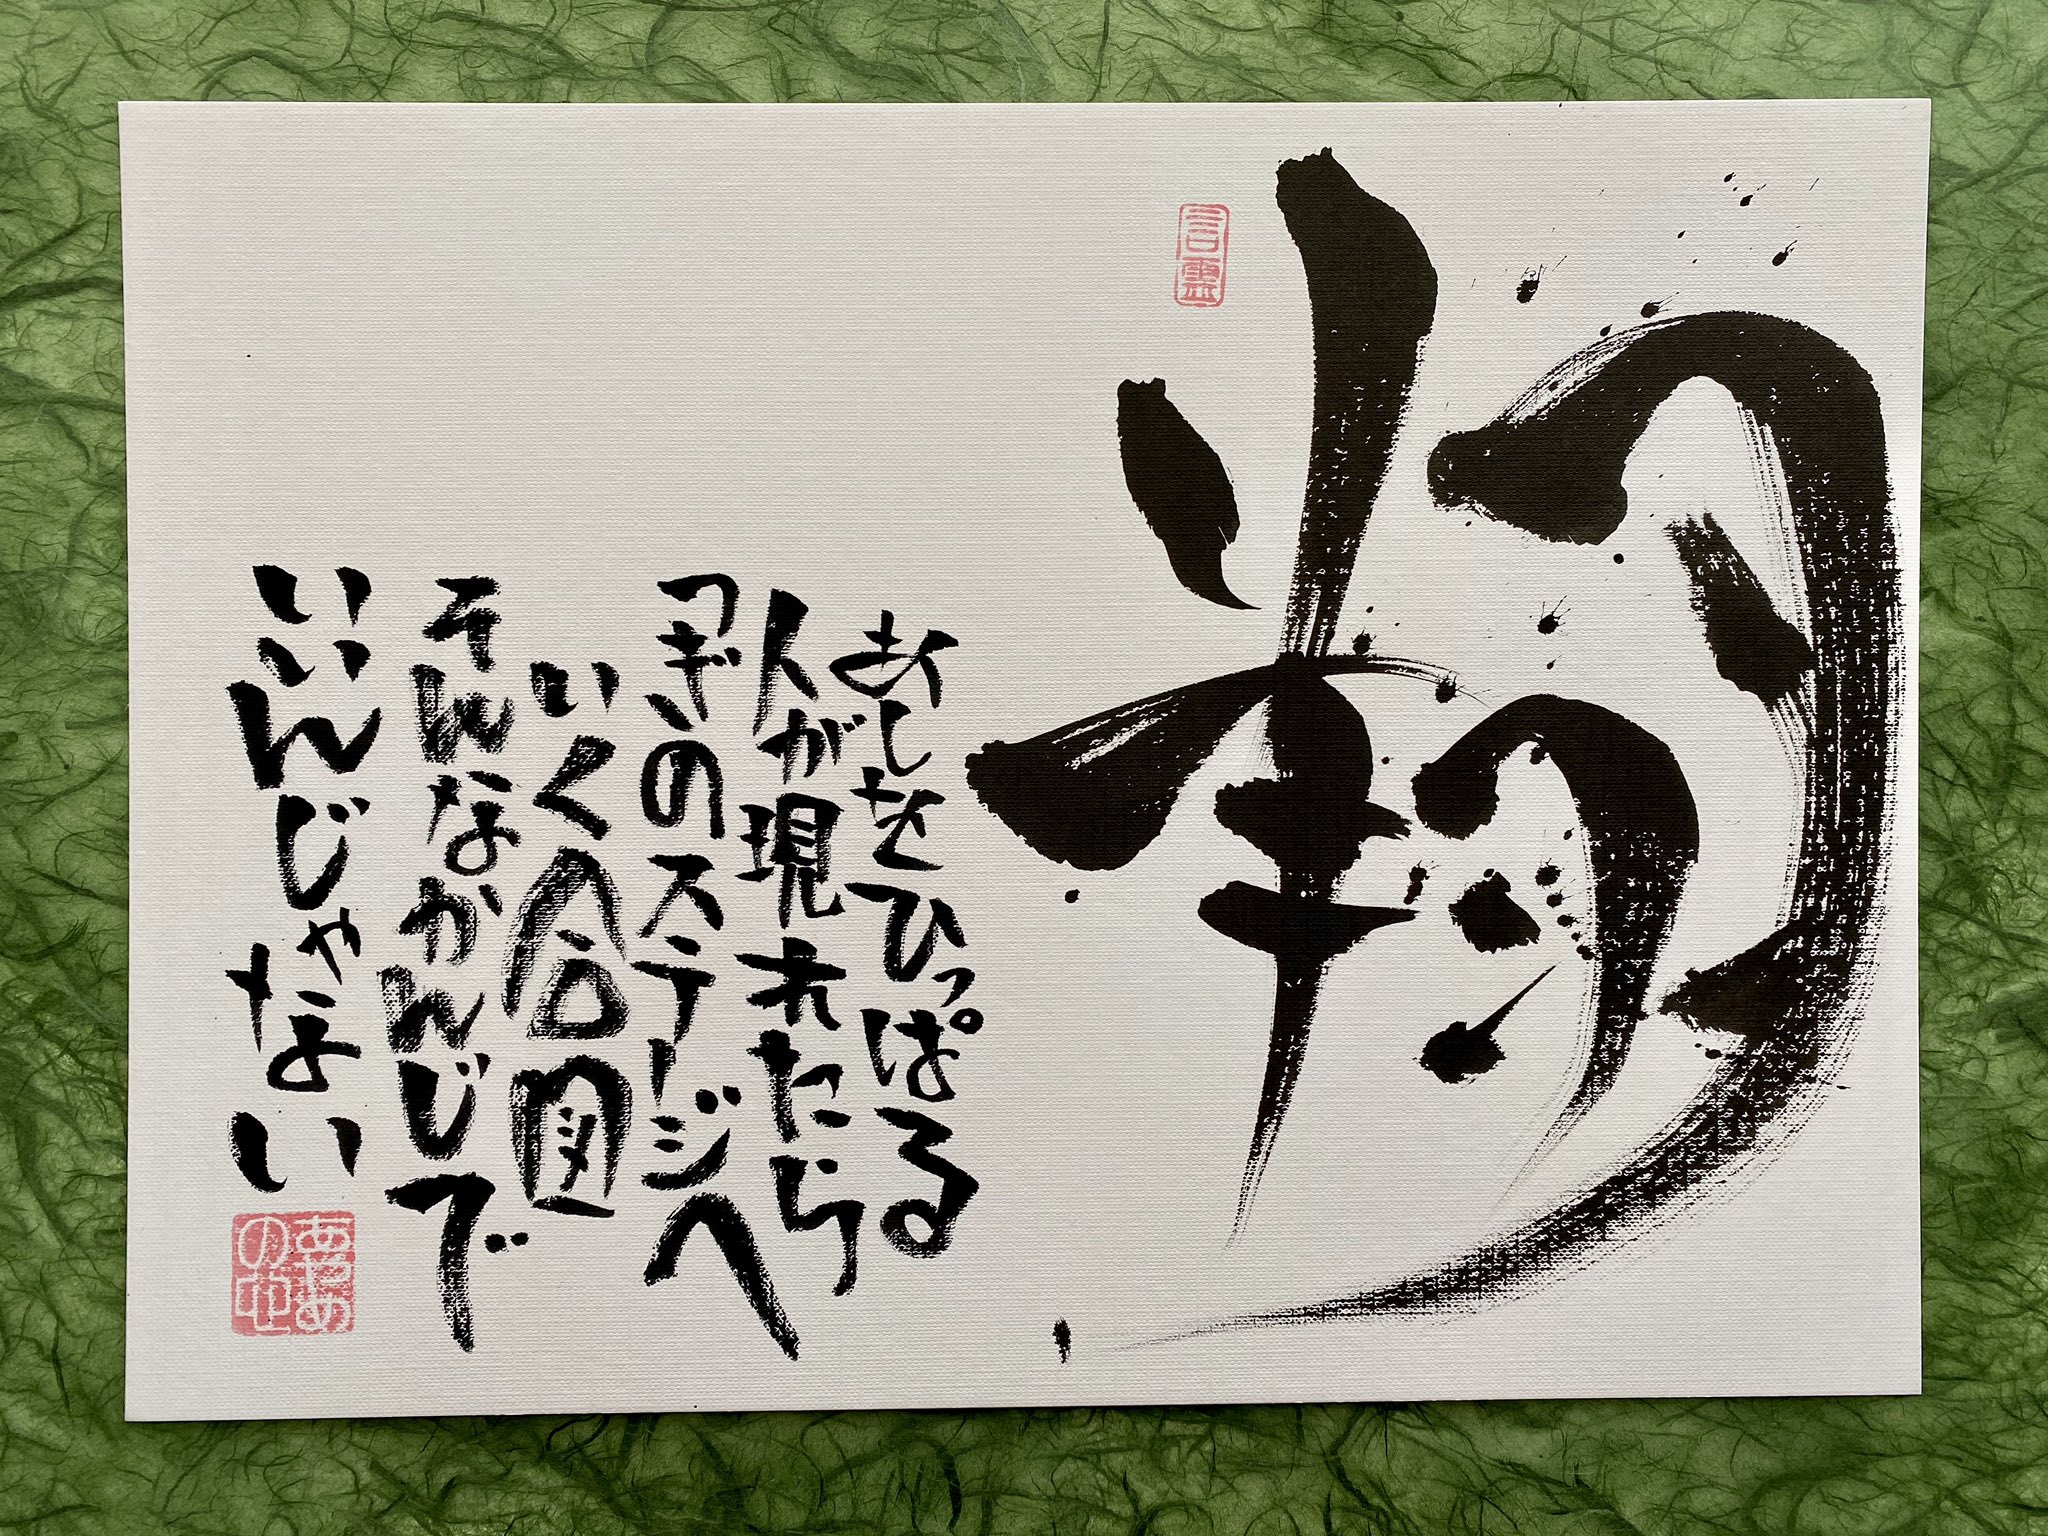 翔
言霊
あしをひっぱる
人が現れたら
つぎのステージへ
いく合図
そんなかんじで
いいんじゃない